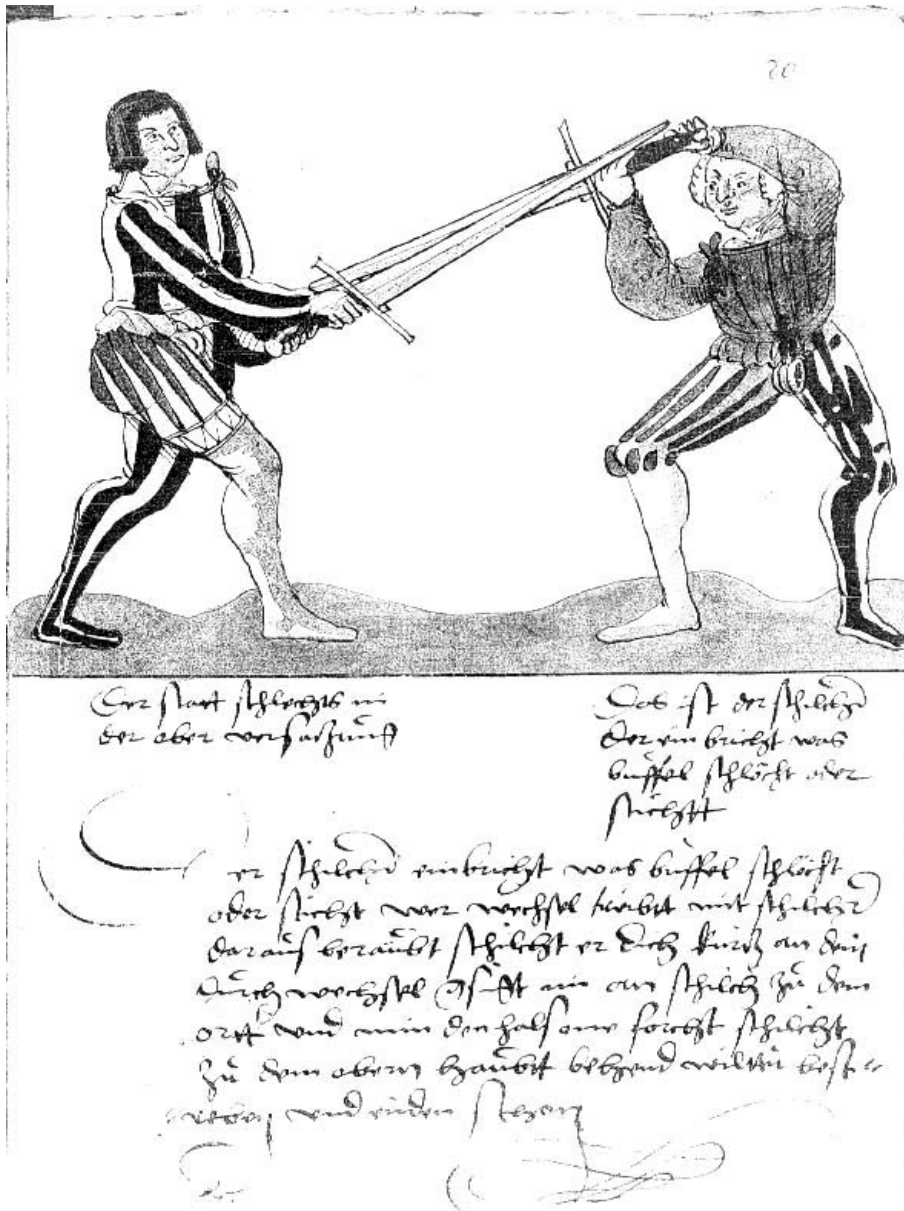 20
Der statt schlechts in
der ober versatzung
Das ist der schilchũ
der ein bricht was
buffel schlöcht oder
stichtt
er schilchũ einbricht was buffel schlöcht
oder sticht wer wechsel treibtt mit schilchũ
daraus beraubt schilcht er dich kurtz an dein
durch wechsel im an schilch zu dem
ortt und nim den hals one forcht schilcht
zu dem obern haubtt behend wiltu
und